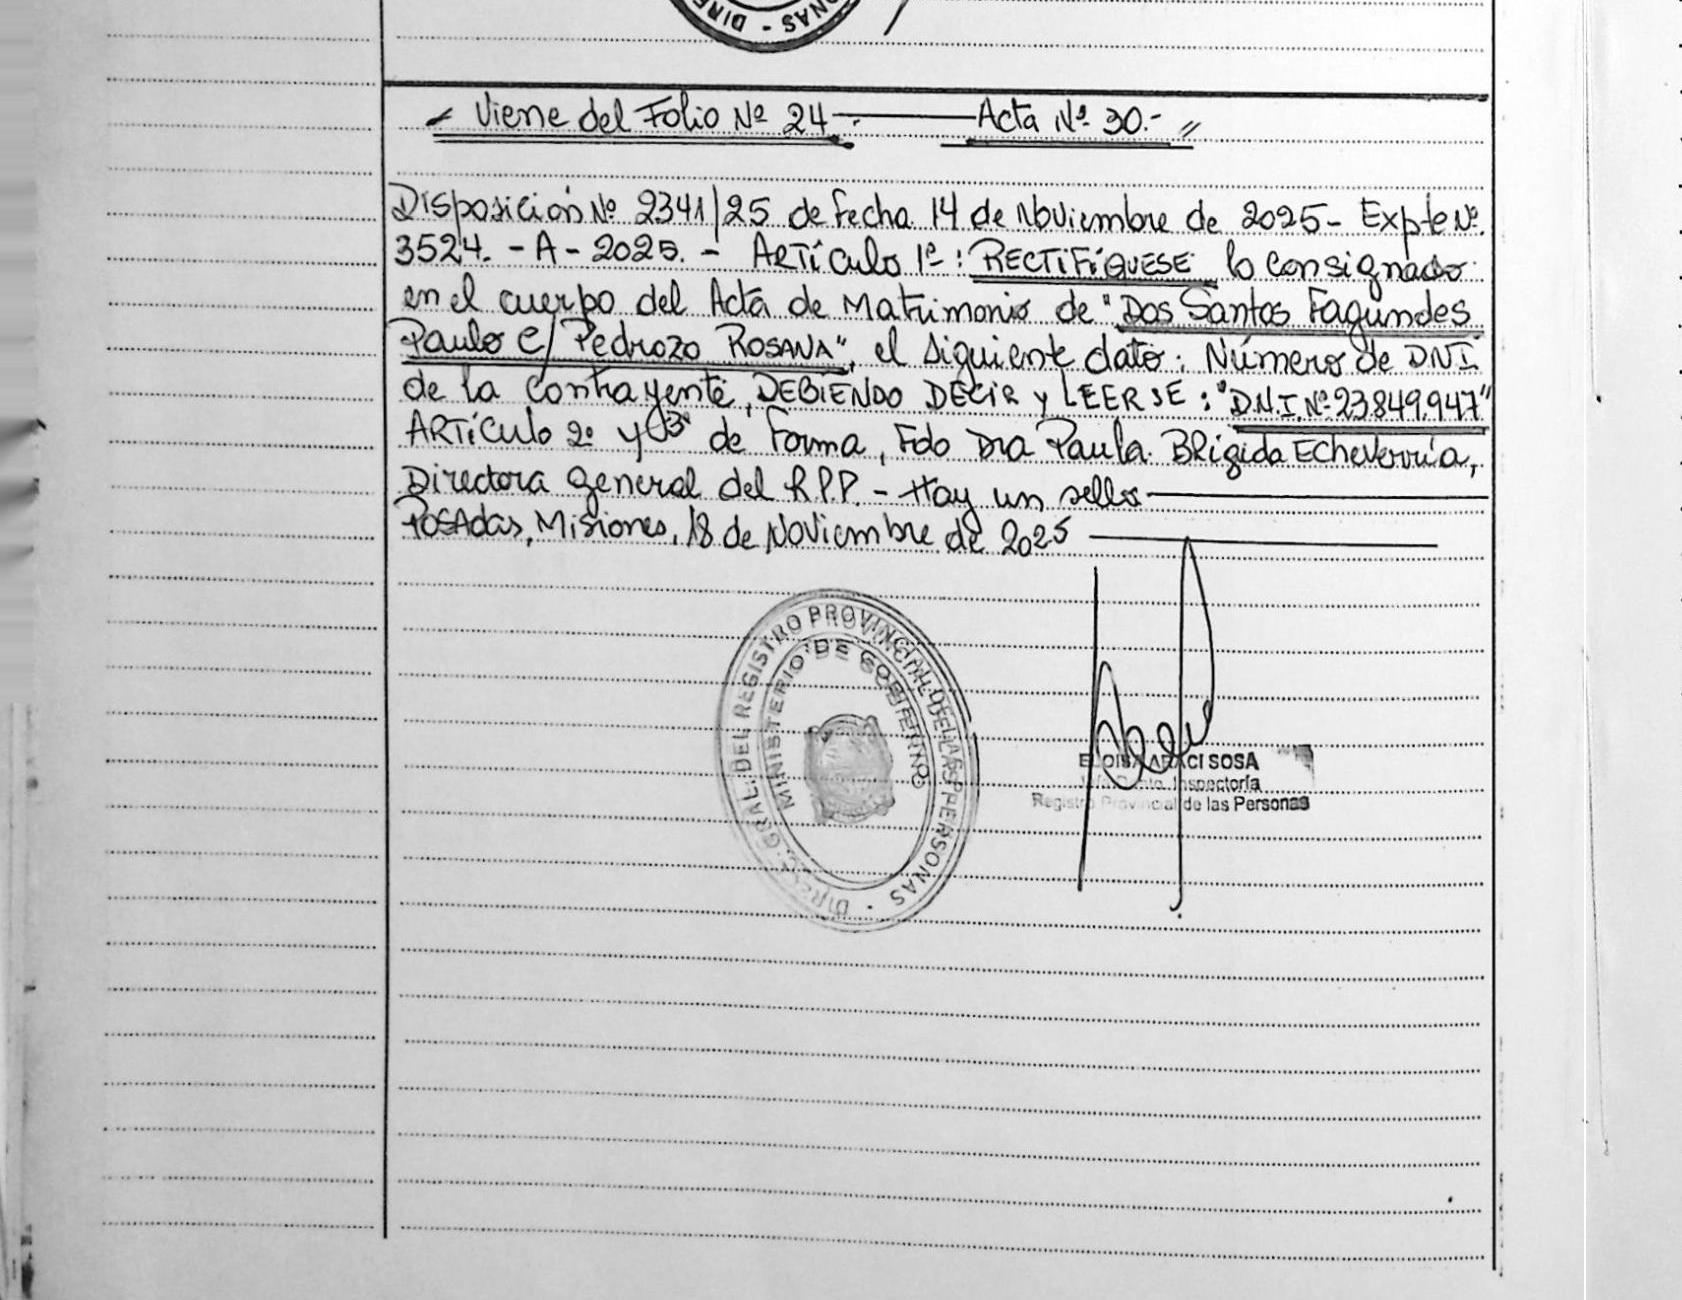 DIRE - SONAS
Viene del Folio Nº 24 —— Acta Nº 30.- //
Disposición Nº 2341/25 de fecha 14 de Noviembre de 2025- Expte Nº.
3524. - A - 2025. - ARTículo 1º: RECTIFÍQUESE lo consignado
en el cuerpo del Acta de Matrimonio de "Dos Santos Fagundes
Paulo C/ Pedrozo ROSANA", el siguiente dato: Número de DNI
de la contrayente, DEBIENDO DECIR y LEERSE: "D.N.I. Nº 23.849.947"
ARTÍCULO 2º y 3º de Forma, Fdo Dra Paula BRígida Echeverría,
Directora General del R.P.P. - Hay un sello
POSAdas, Misiones, 18 de Noviembre de 2025
DIRECC. GRAL. DEL REGISTRO PROVINCIAL DE LAS PERSONAS -
MINISTERIO DE GOBIERNO
ELOISA ARACI SOSA
Inspectoría
Registro Provincial de las Personas